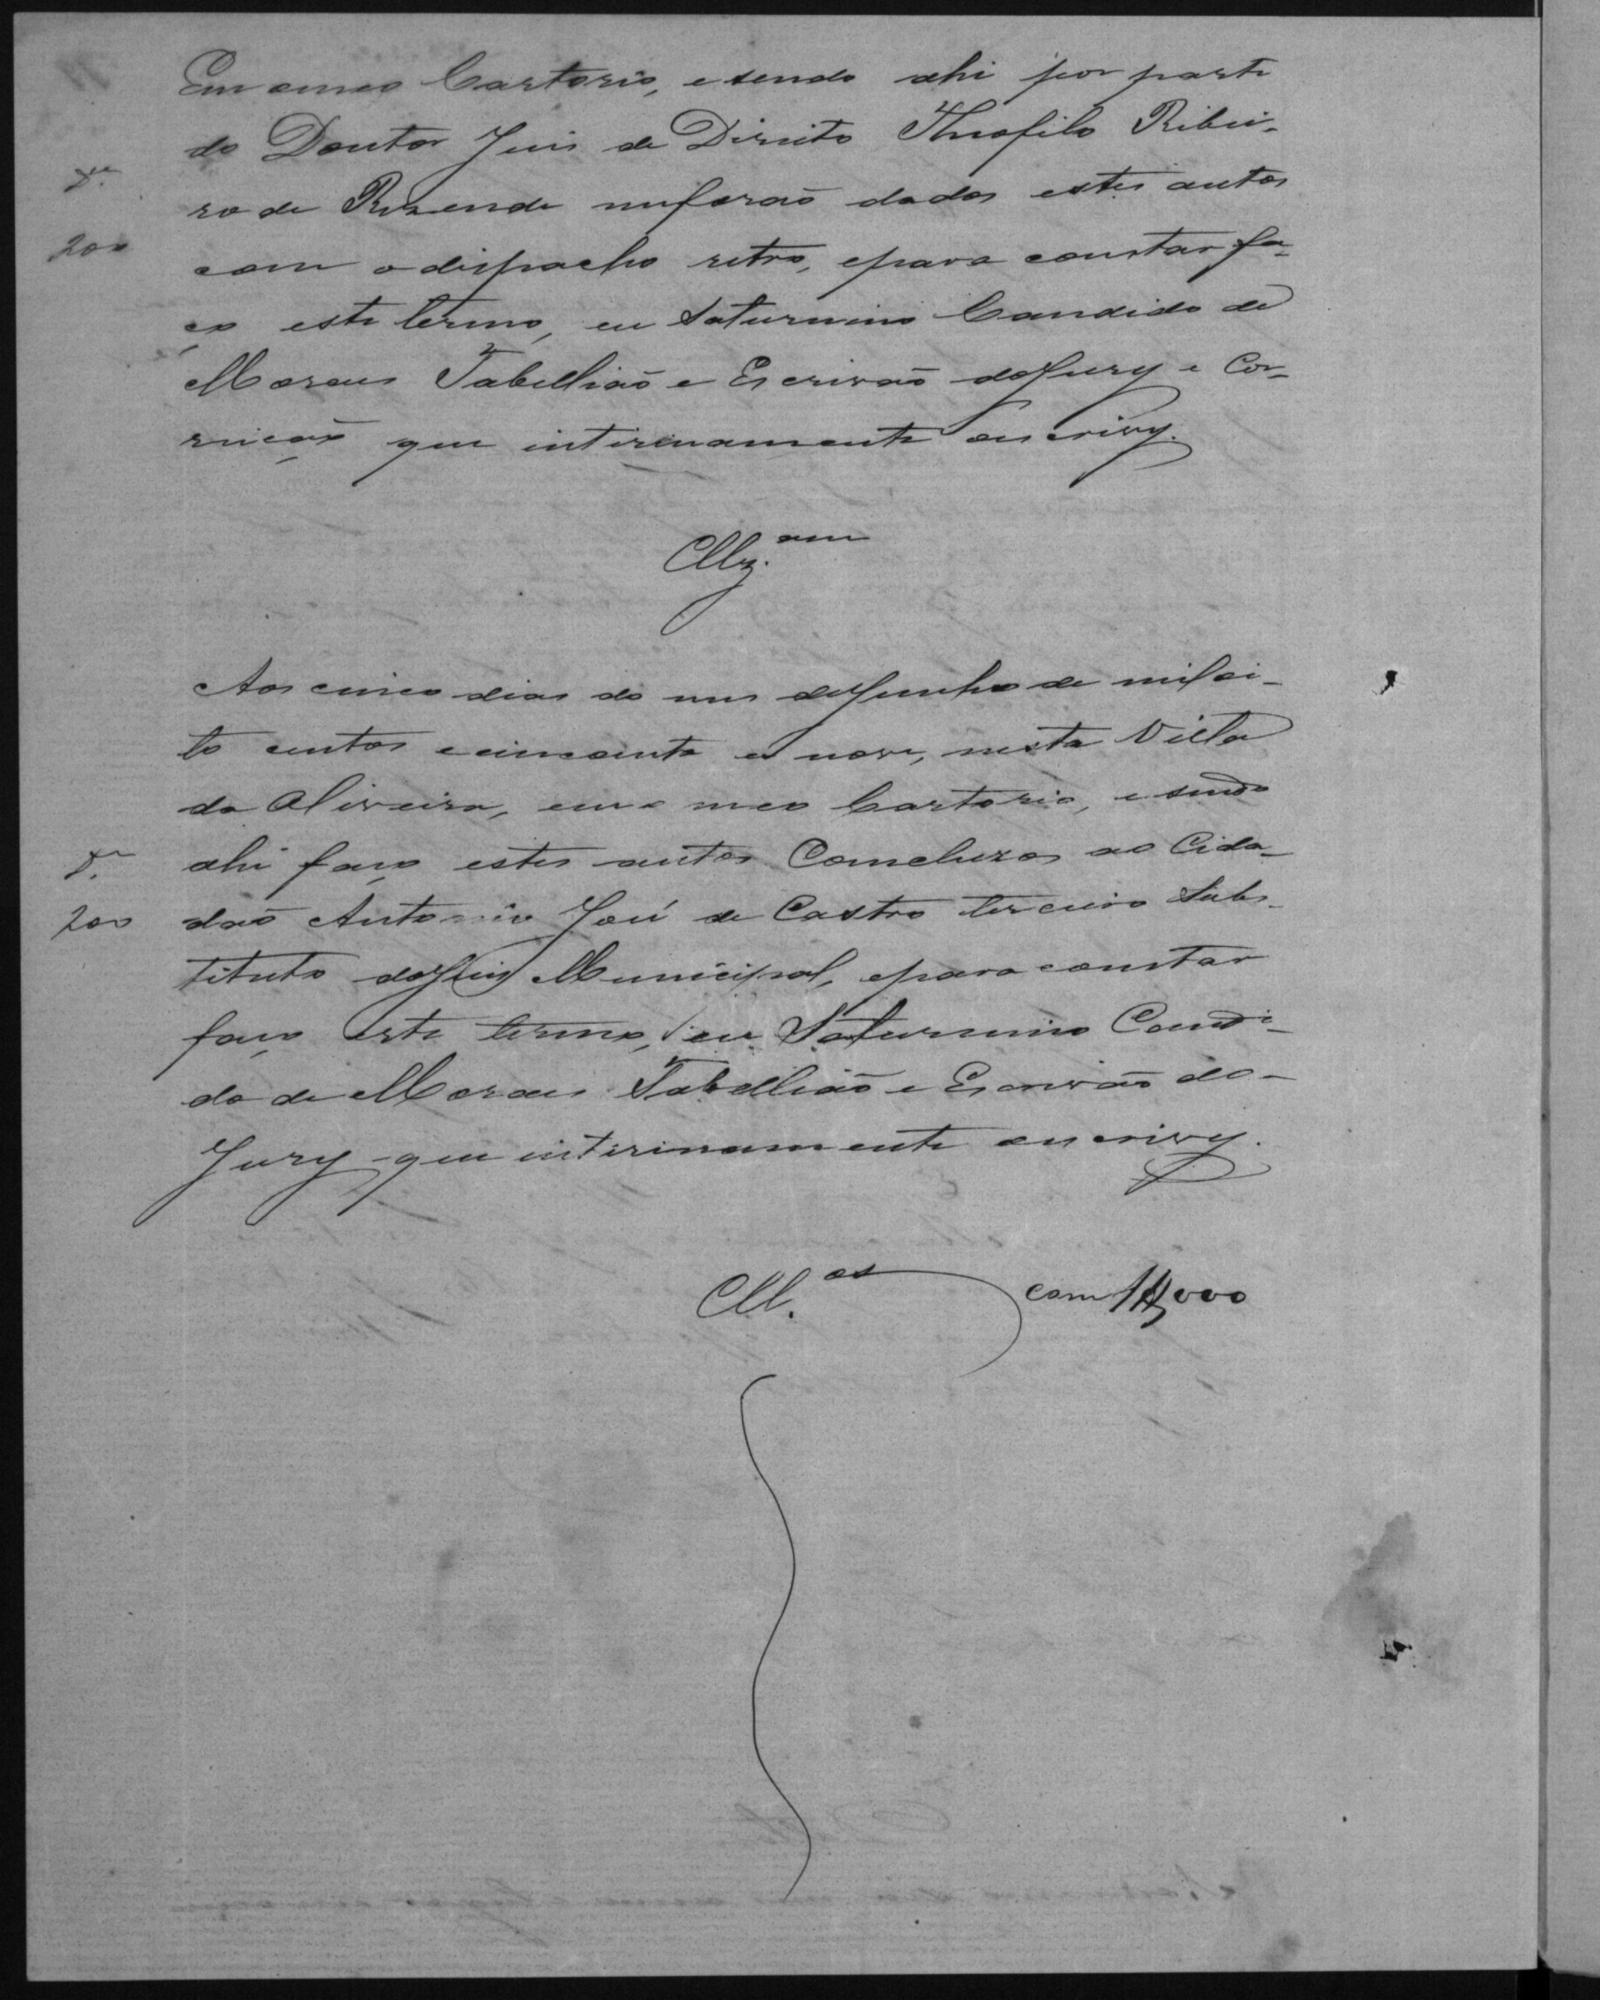 Em o meo Cartorio, e sendo ahi por parte
do Doutor Juis de Direito Theofilo Ribei-
ro de Rezende me forão dados estes autos
D.
200
com o dispacho retro, e para constar fa-
ço este termo, eu Saturnino Candido de
Moraes Tabellião e Escrivão do Jury e Cor-
reição que interinamente escrivy.
Clz.am
Aos cinco dias do mes de Junho de mil oi-
to centos e cincoenta e nove, nesta Villa
da Oliveira, em o meo Cartorio, e sendo
ahi faço estes autos Concluzos ao Cida-
D.
200
dão Antonio José de Castro terceiro Subs-
tituto do Juiz Municipal, e para constar
faço este termo, eu Saturnino Candi-
do de Moraes Tabellião e Escrivão do
Jury que interinamente escrivy.
Cll.os com 1$000